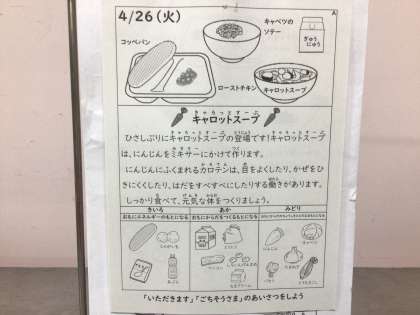 4/26(火)
A
キャベツの
ソテー
ぎゅう
にゅう
コッペパン
ローストチキン
キャロットスープ
きゃろっとすーぷ
キャロットスープ
ひさしぶりにキャロットスープの登場です!キャロットスープ
は、にんじんをミキサーにかけて作ります。
にんじんにふくまれるカロテンは、目をよくしたり、かぜをひ
きにくくしたり、はだをすべすべにしたりする働きがあります。
しっかり食べて、元気な体をつくりましょう。
きいろ
あか
みどり
おもにエネルギーのもとになる
おもにからだをつくるもとになる
じゃがいも
にんじん
キャベツ
パセリ
たまねぎ
「いただきます」「ごちそうさま」のあいさつをしよう